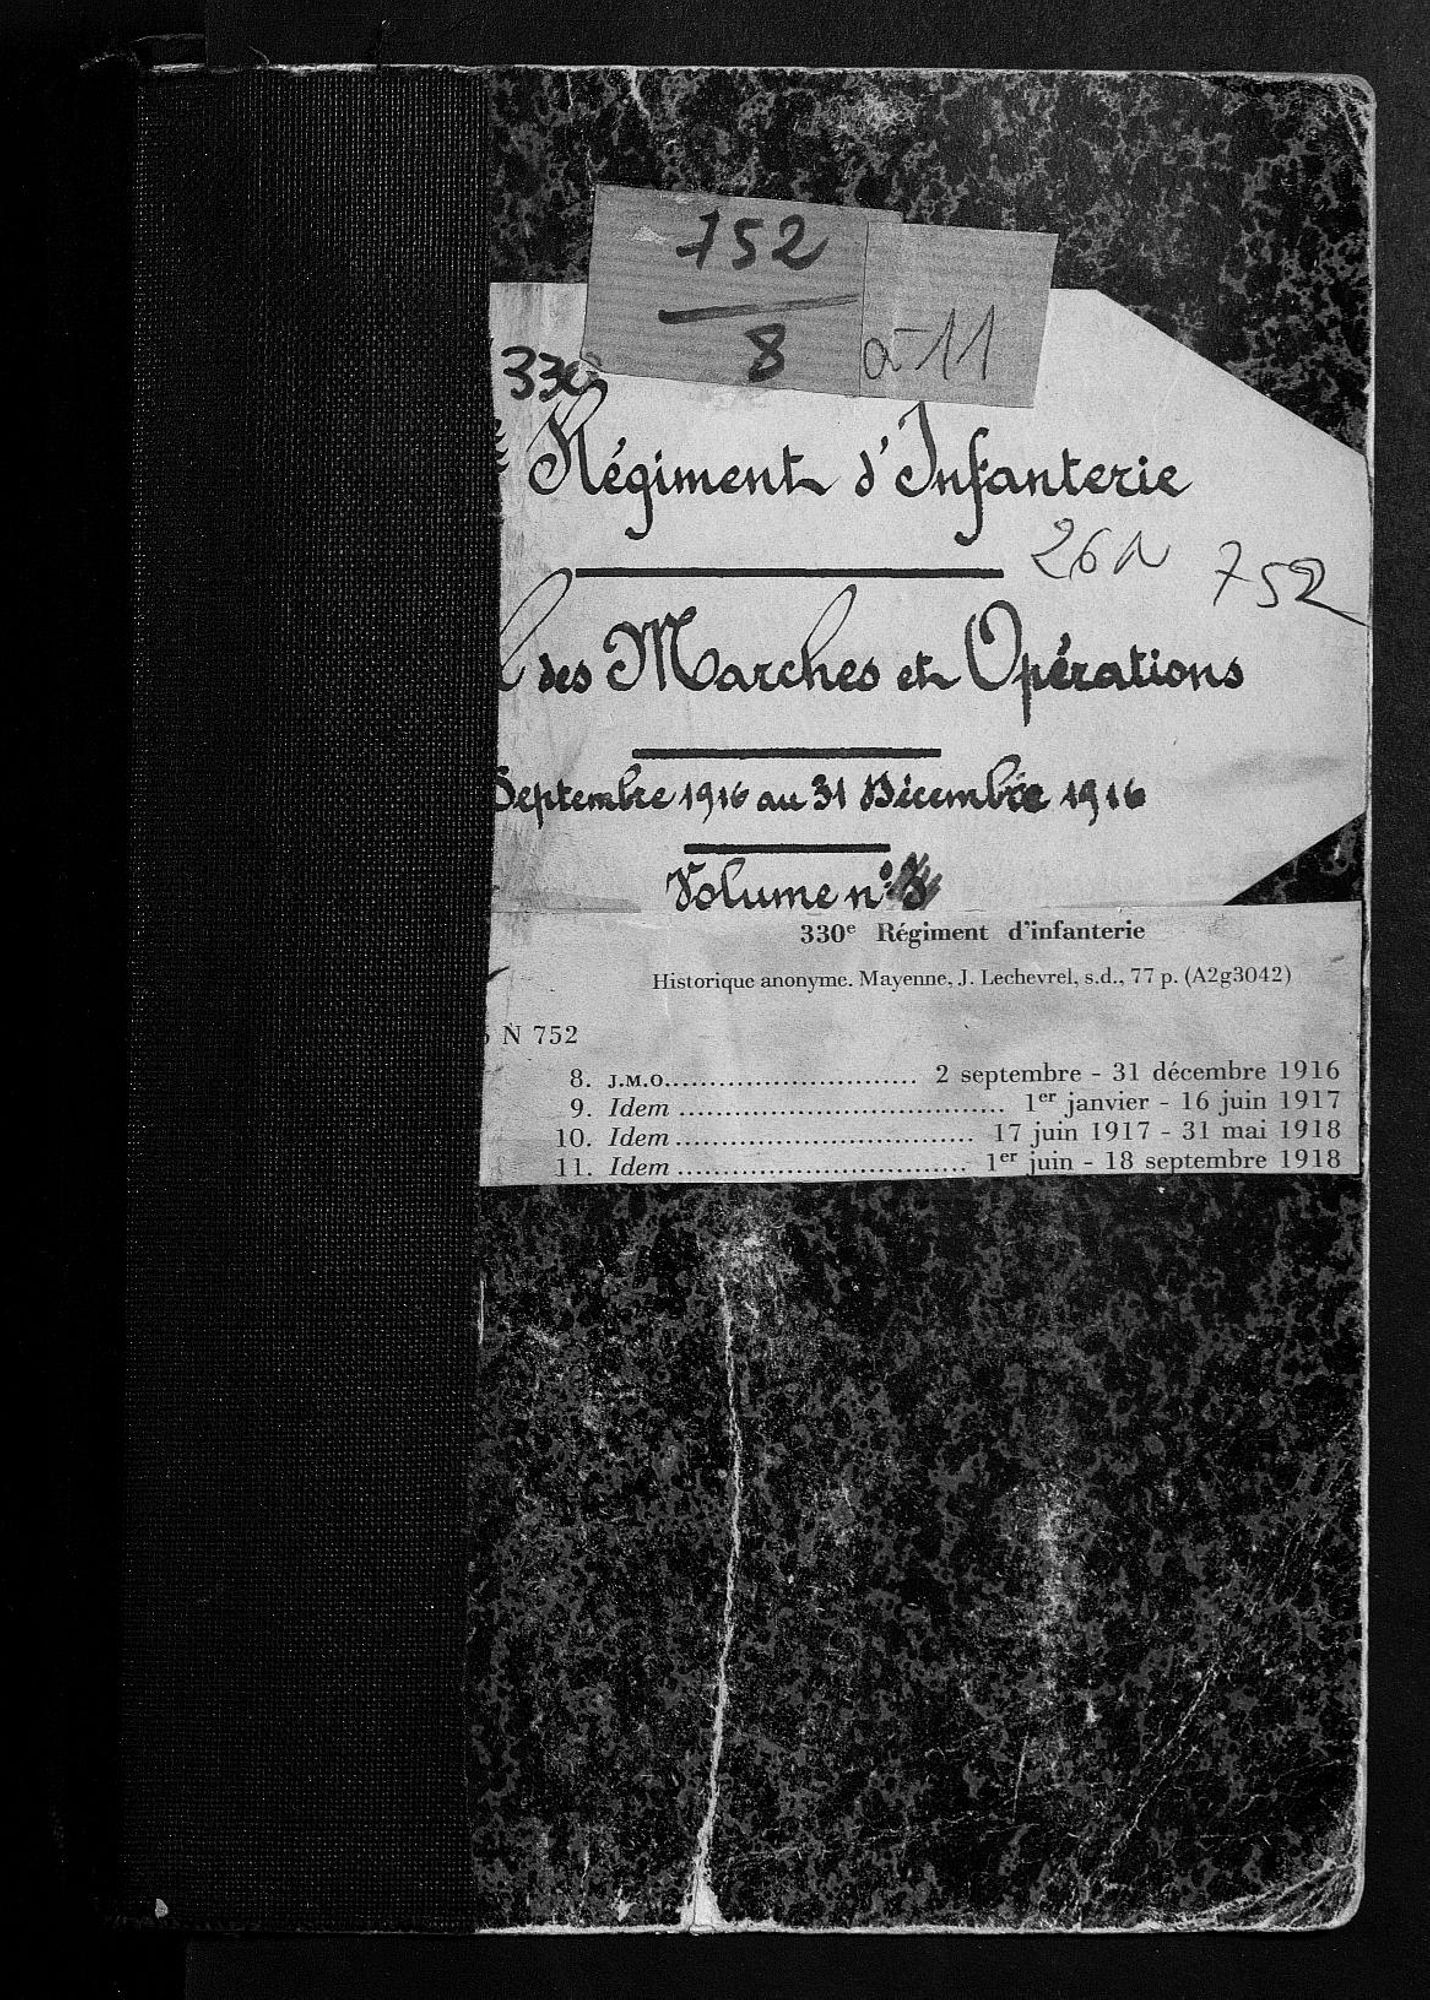 752
8 à 11
330
Régiment d'Infanterie
26 N 752
des Marches et Opérations
Septembre 1916 au 31 Décembre 1916
Volume n°
330e Régiment d'infanterie
Historique anonyme. Mayenne, J. Lechevrel, s.d., 77 p. (A2g3042)
N 752
8. J.M.O. .......................... 2 septembre - 31 décembre 1916
9. Idem .................................. 1er janvier - 16 juin 1917
10. Idem ............................... 17 juin 1917 - 31 mai 1918
11. Idem .............................. 1er juin - 18 septembre 1918